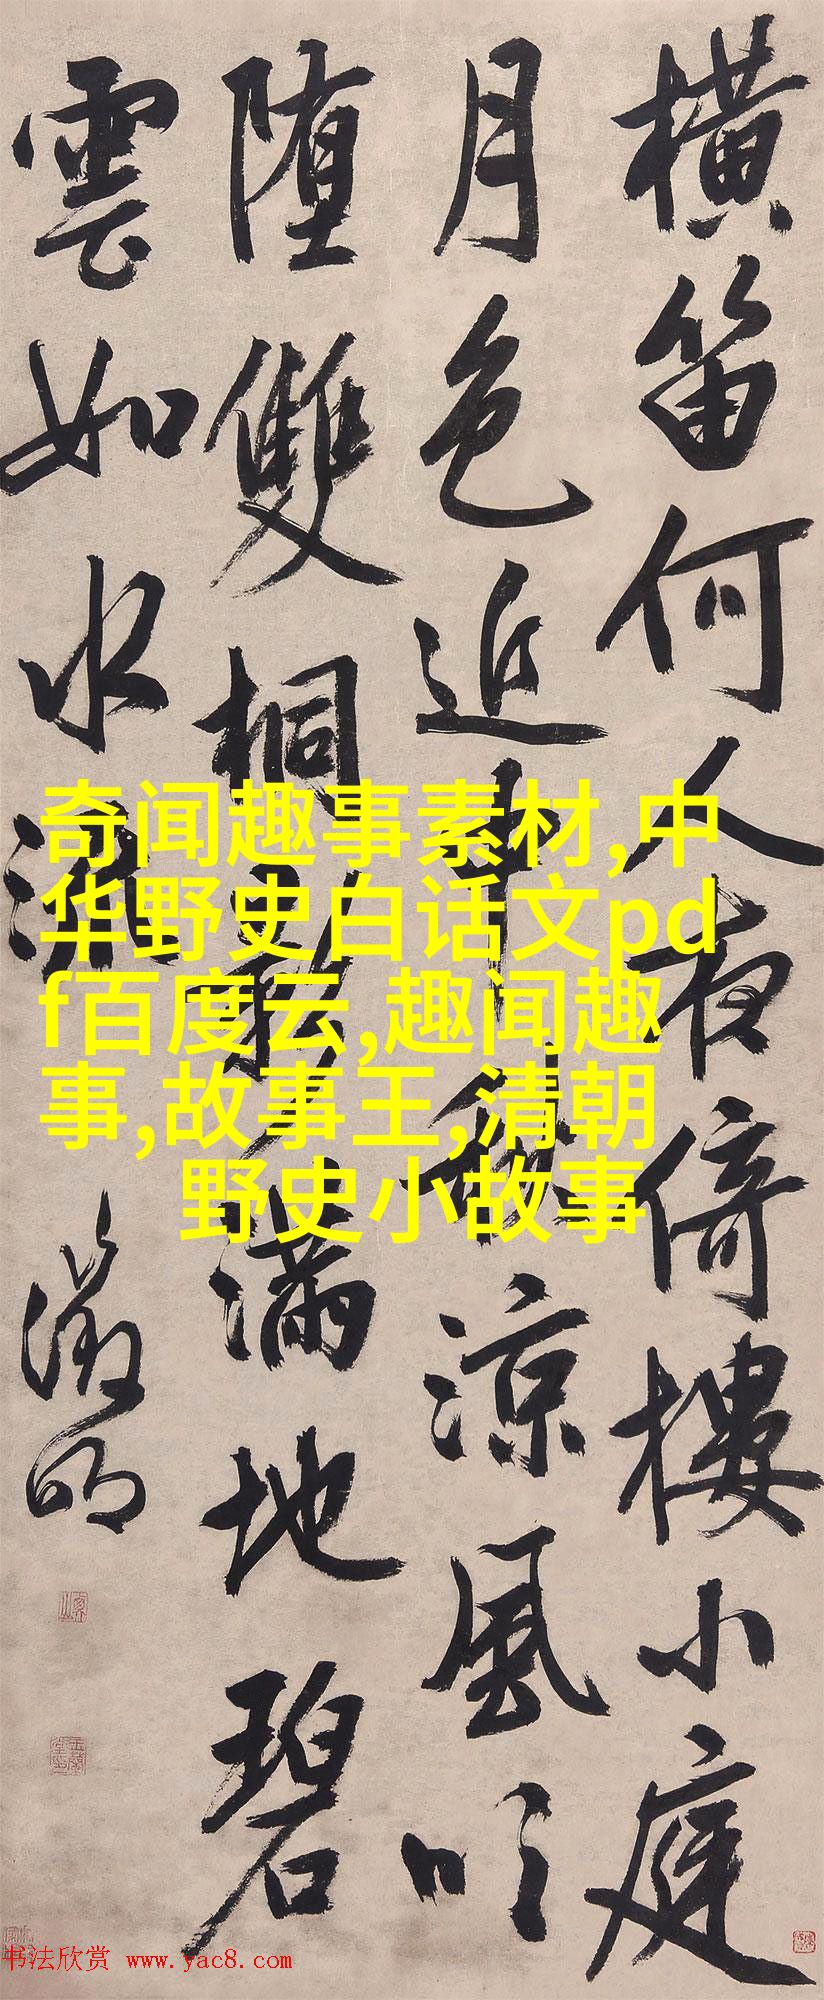 横笛何人夜倚樓小庭
月色近中秋涼風吹
堕雙桐影滿地碧
雲如水流
徵明
奇闻趣事素材,中
华野史白话文pd
f百度云,趣闻趣
事,故事王,清朝
野史小故事
书法欣赏 www.yac8.com